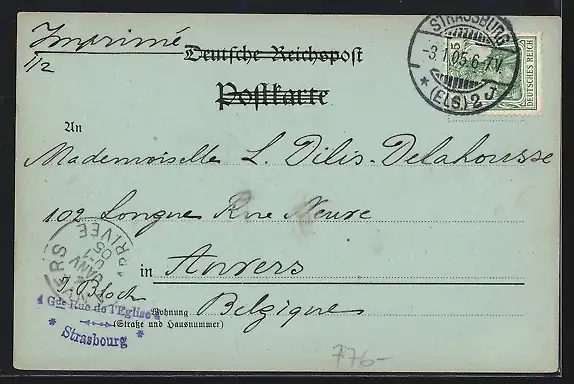 Imprimé
1/2
Deutsche Reichspost
Postkarte
STRASSBURG
-3.1.05.6-7V.
* (ELS.) 2 J *
5
DEUTSCHES REICH
An
Mademoiselle L. Dilis-Delahousse
102 Longue Rue Neuve
in Anvers
Belgique
Wohnung
(Straße und Hausnummer)
ARRIVÉE
JANV
05
J. Bloch
Gde Rue de l'Eglise
* Strasbourg *
776-